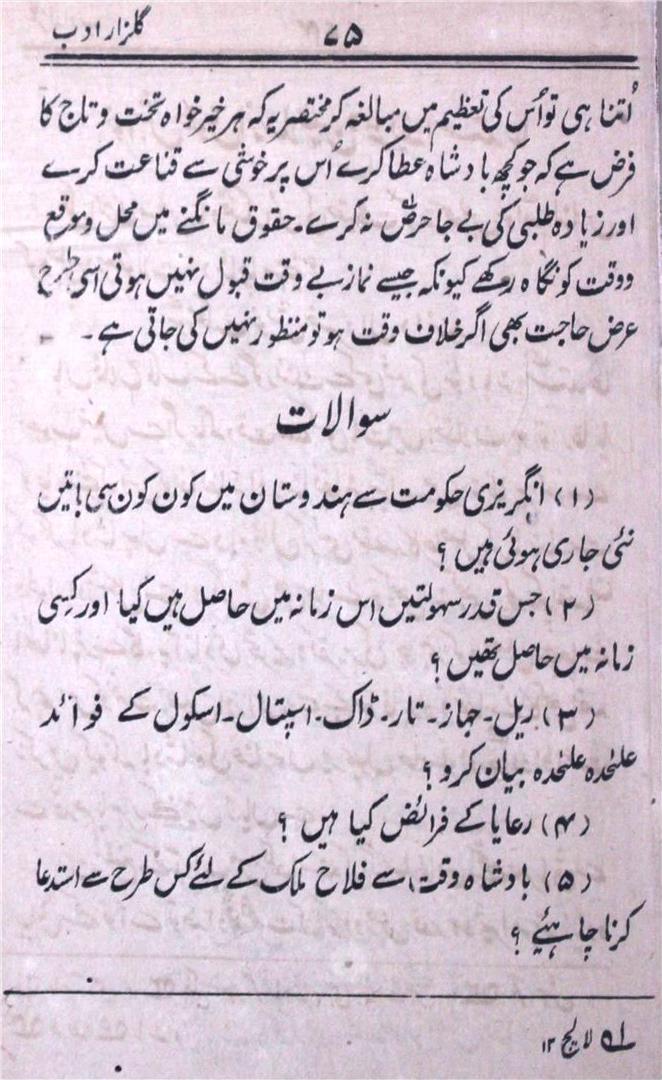 گلزار ادب
۷۵
اُتنا ہی تو اُس کی تعظیم میں مبالغہ کر مختصر یہ کہ ہر خیر خواہ تخت و تاج کا
فرض ہے کہ جو کچھ بادشاہ عطا کرے اُس پر خوشی سے قناعت کرے
اور زیادہ طلبی کی بے جا حرص نہ کرے۔ حقوق مانگنے میں محل و موقع
و وقت کو نگاہ رکھے کیونکہ جیسے نماز بے وقت قبول نہیں ہوتی اسی طرح
عرض حاجت بھی اگر خلاف وقت ہو تو منظور نہیں کی جاتی ہے۔
سوالات
(۱) انگریزی حکومت سے ہندوستان میں کون کون سی باتیں
نئی جاری ہوئی ہیں ؟
(۲) جس قدر سہولتیں اس زمانہ میں حاصل ہیں کیا اور کسی
زمانہ میں حاصل تھیں ؟
(۳) ریل۔ جہاز۔ تار۔ ڈاک۔ اسپتال۔ اسکول کے فوائد
علٰحدہ علٰحدہ بیان کرو ؟
(۴) رعایا کے فرائض کیا ہیں ؟
(۵) بادشاہ وقت سے فلاح ملک کے لئے کس طرح سے استدعا
کرنا چاہئیے ؟
لہ لالچ ۱۲